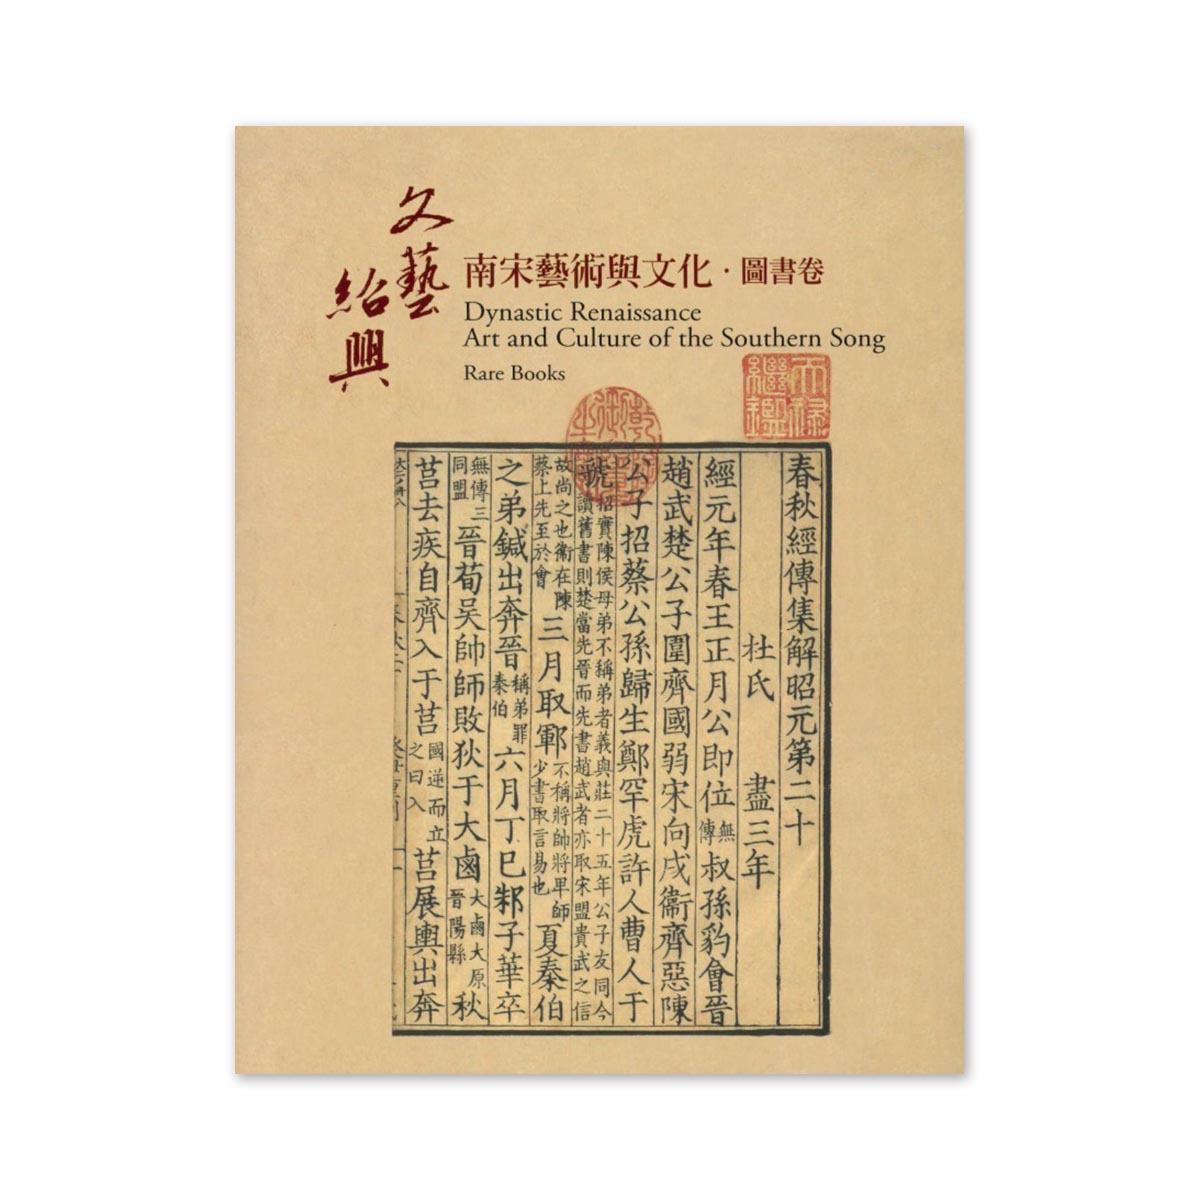 文藝
紹興
南宋藝術與文化・圖書卷
Dynastic Renaissance
Art and Culture of the Southern Song
Rare Books
天祿繼鑑
乾隆御覽之寶
春秋經傳集解昭元第二十
杜氏 盡三年
經元年春王正月公即位無傳叔孫豹會晉
趙武楚公子圍齊國弱宋向戌衛齊惡陳
公子招蔡公孫歸生鄭罕虎許人曹人于
虢招實陳侯母弟不稱弟者義與莊二十五年公子友同今讀舊書則楚當先晉而先書趙武者亦取宋盟貴武之信
故尚之也衛在陳蔡上先至於會三月取鄆不稱將帥將卑師少書取言易也夏秦伯
之弟鍼出奔晉稱弟罪秦伯六月丁巳邾子華卒
無傳三同盟晉荀吳帥師敗狄于大鹵大鹵大原晉陽縣秋
莒去疾自齊入于莒國逆而立之曰入莒展輿出奔